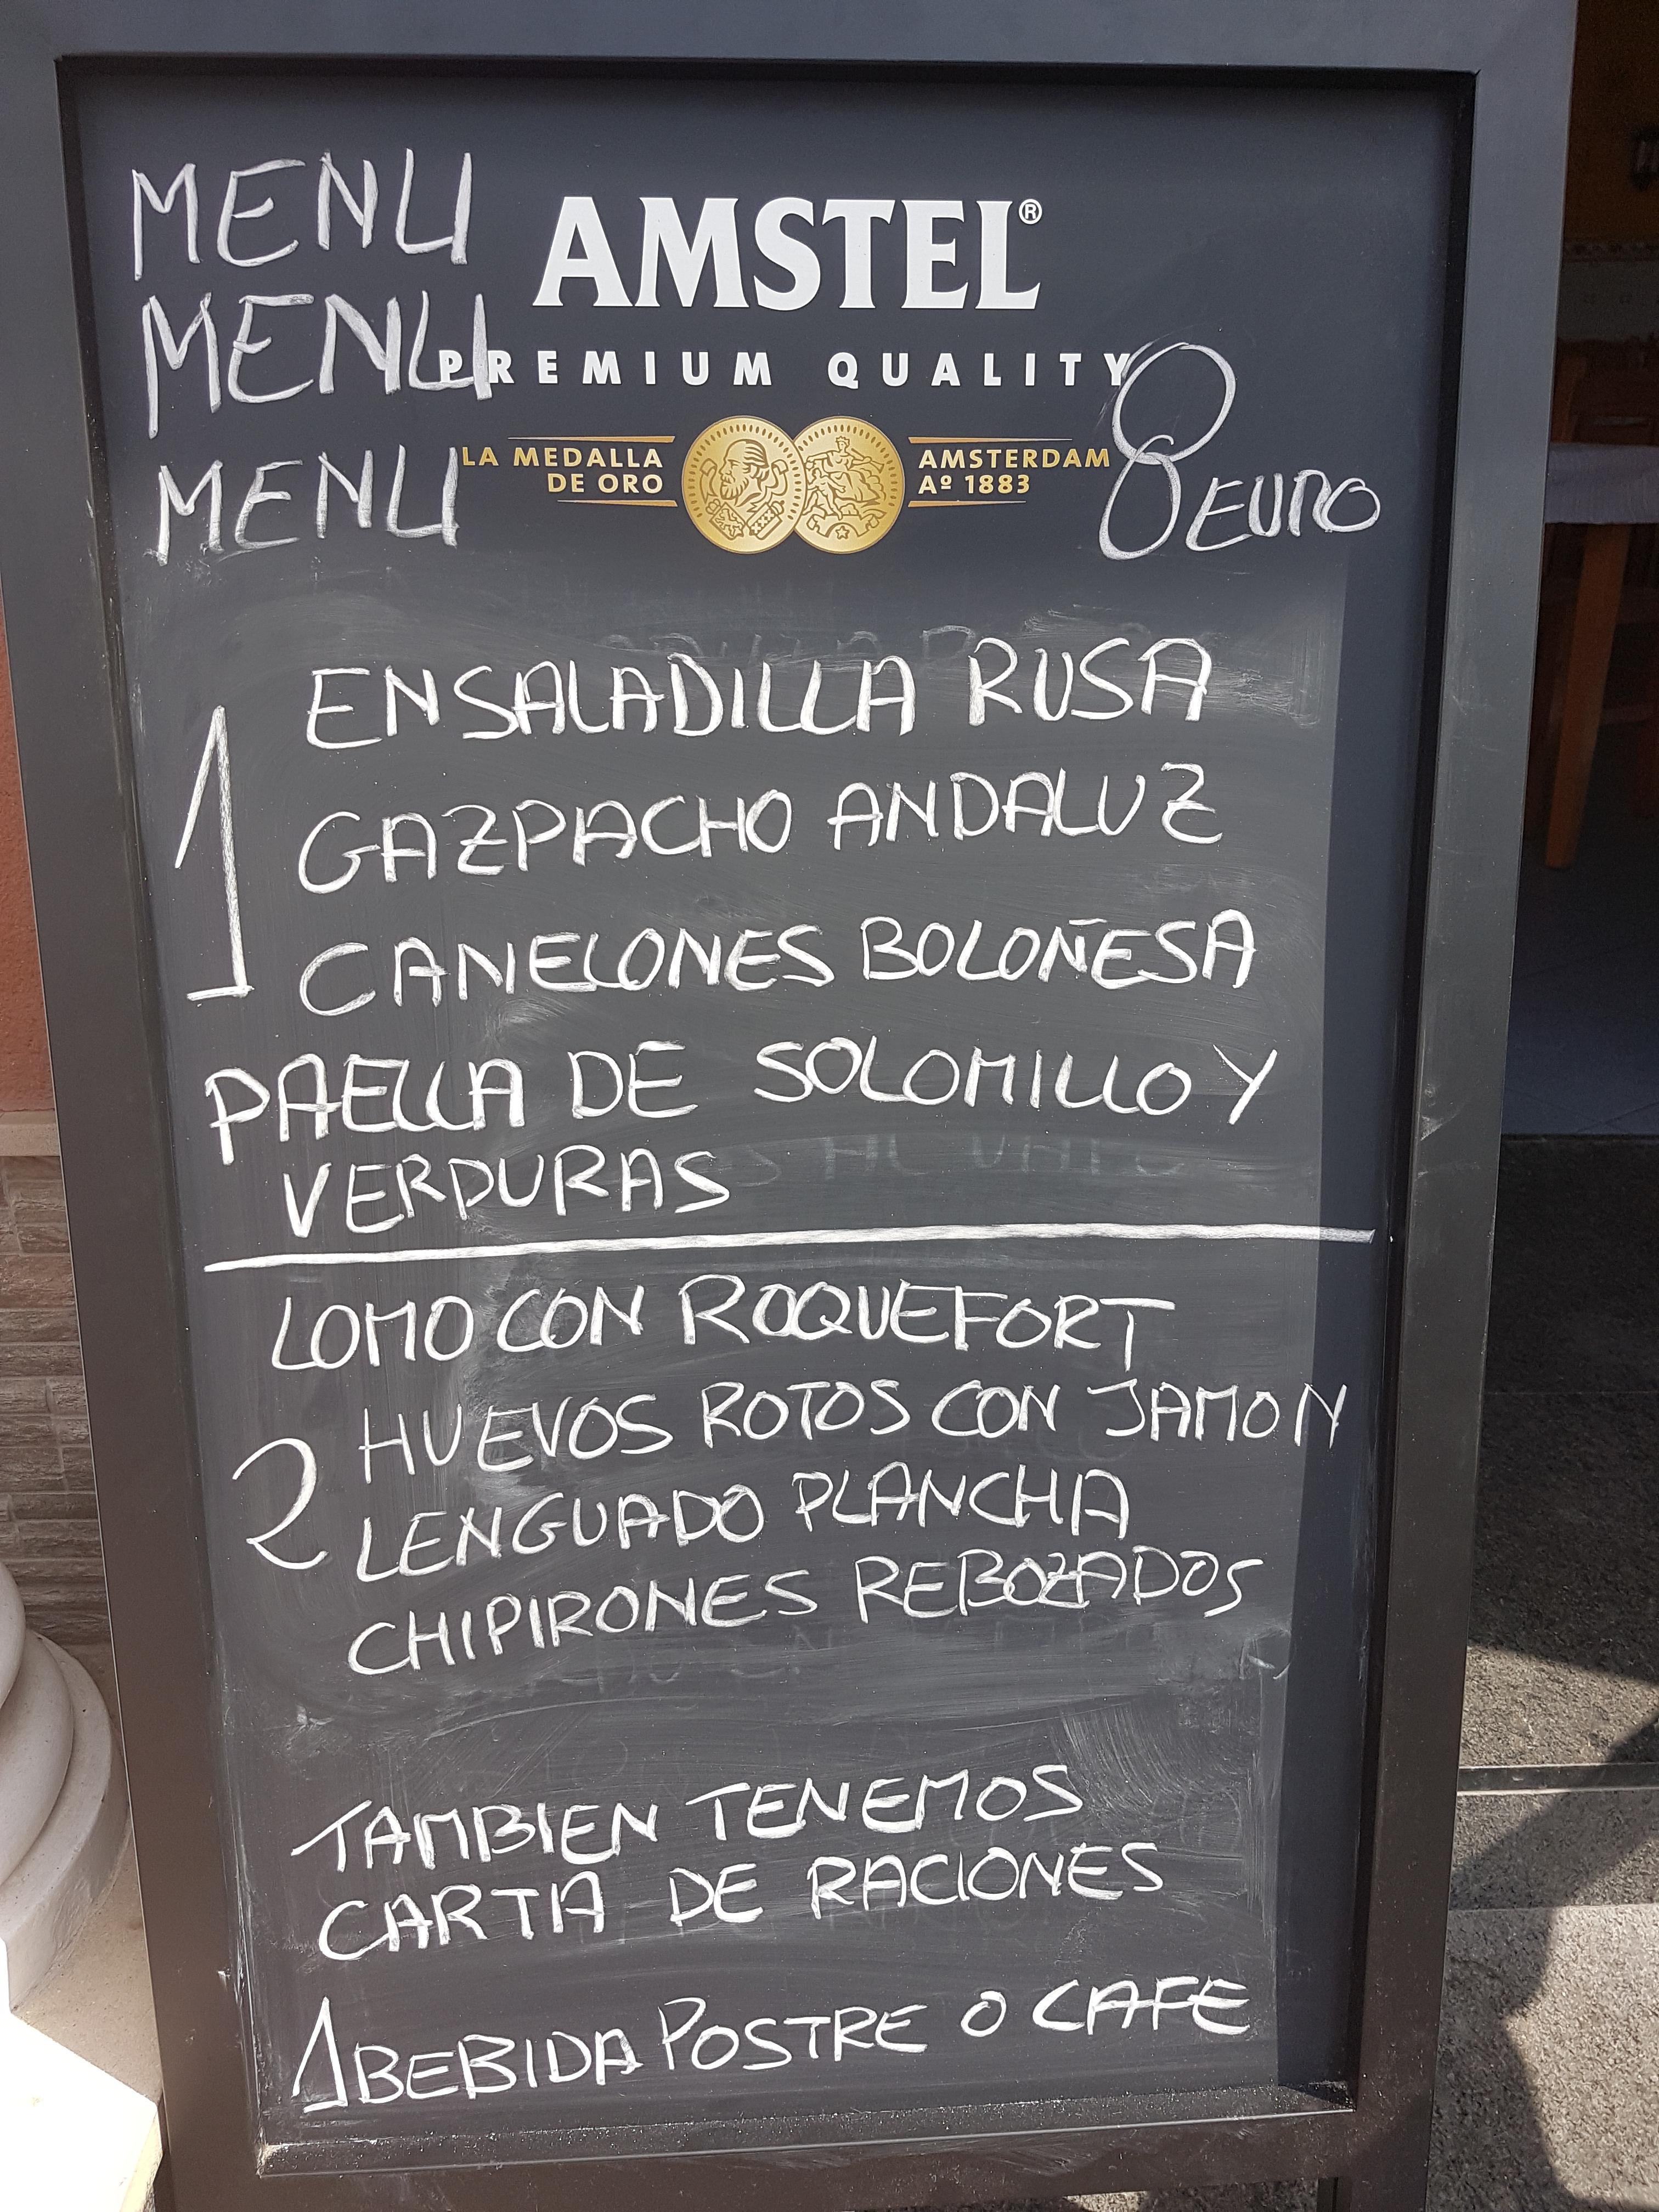 MENU
AMSTEL®
MENU
PREMIUM QUALITY
MENU
LA MEDALLA
DE ORO
AMSTERDAM
Aº 1883
8 EURO
1
ENSALADILLA RUSA
GAZPACHO ANDALUZ
CANELONES BOLOÑESA
PAELLA DE SOLOMILLO Y
VERDURAS
LOMO CON ROQUEFORT
2
HUEVOS ROTOS CON JAMON
LENGUADO PLANCHA
CHIPIRONES REBOZADOS
TAMBIEN TENEMOS
CARTA DE RACIONES
1 BEBIDA POSTRE O CAFE